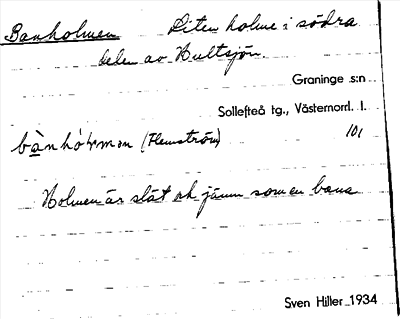 Banholmen Liten holme i södra
delen av Hultsjön.
Graninge s:n
Sollefteå tg., Västernorrl. l.
bànhólmen (Flemström) 101
Holmen är slät och jämn som en bana
Sven Hiller 1934